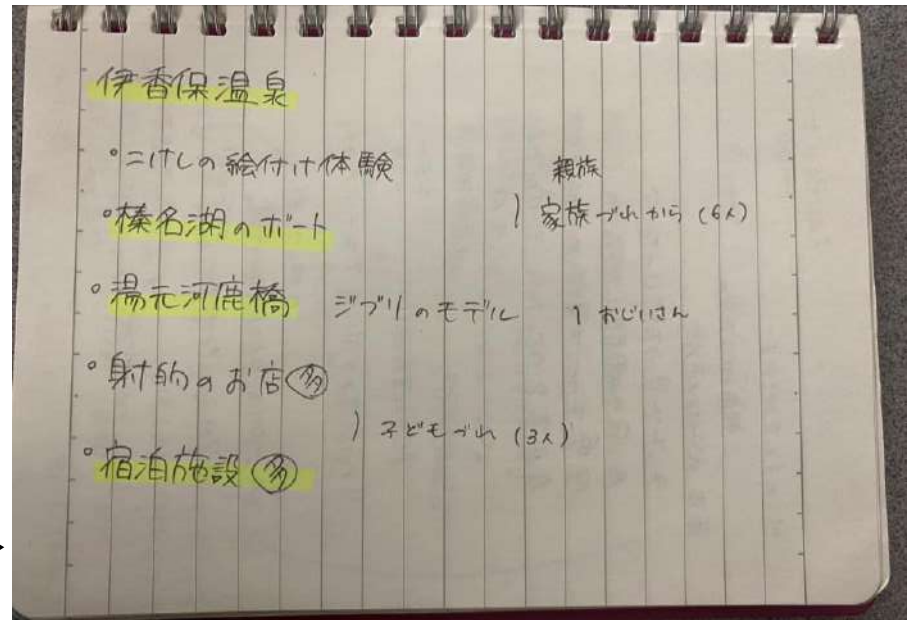 伊香保温泉
°こけしの絵付け体験
親族
°榛名湖のボート
) 家族づれから (6人)
°湯元河鹿橋 ジブリのモデル ) おじいさん
°射的のお店 多
) 子どもづれ (3人)
°宿泊施設 多